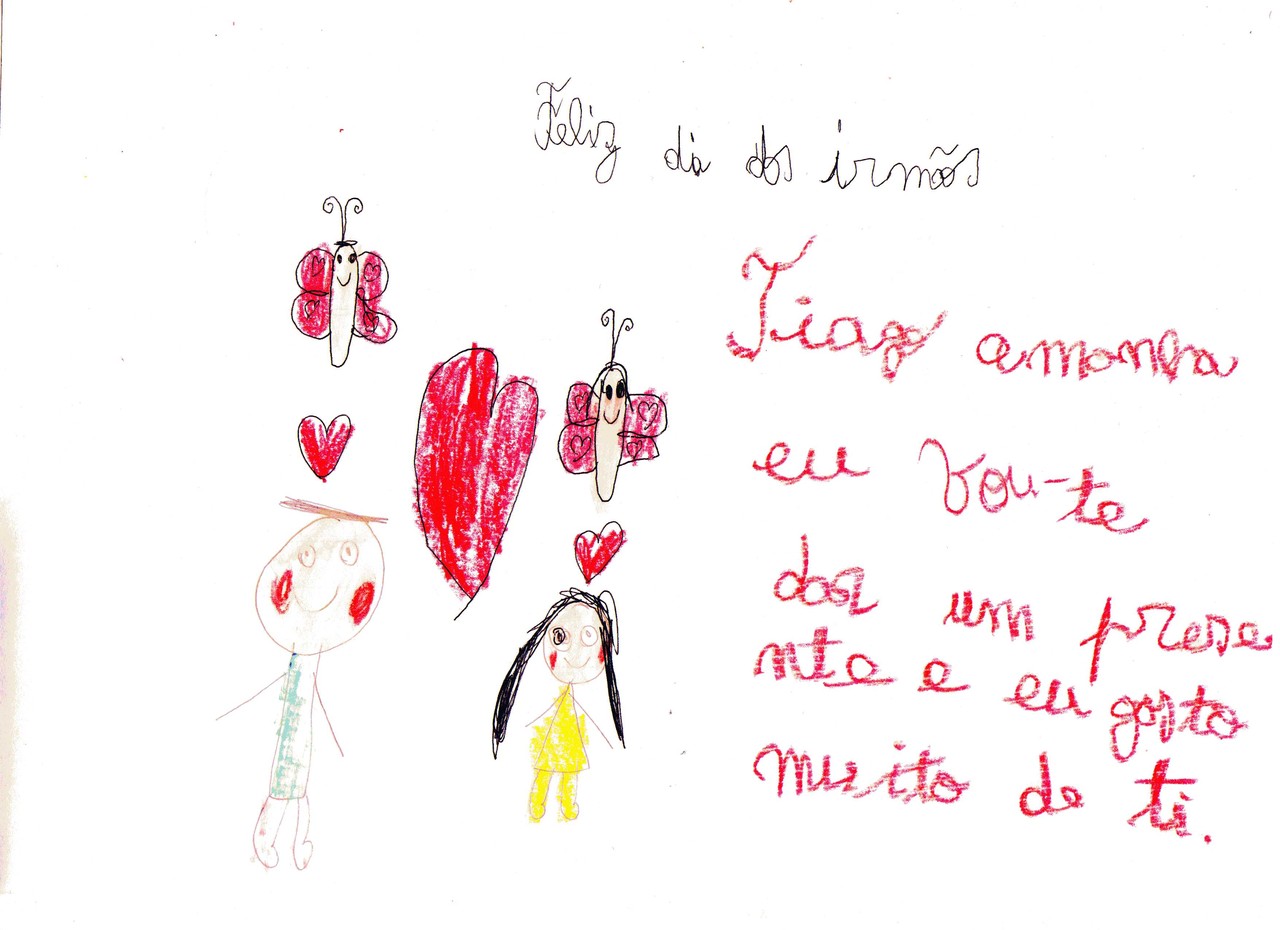 Feliz dia dos irmãos
Tiago amanha
eu vou-te
dar um prese
nte e eu gosto
muito de ti.